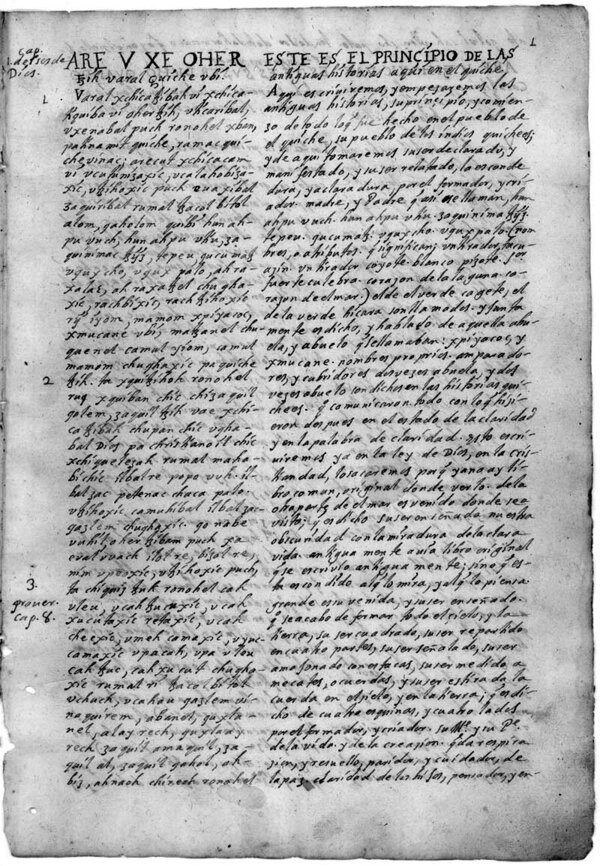 Cap.
de ser de
Dios.
1
ARE V XE OHER
tzih varal Quiche ubi.
Varal xchicatzibah vi xchica
tiquiba vi oher tzih, vticaribal,
vxenabal puch ronohel xban,
pa tinamit quiche, ramac qui
che vinac; arecut xchicacam
vi vcutunizaxic, vcalahobiza
xic, vtzihoxic puch euaxibal
zaquiribal rumal tzacol bitol
alom, qaholom quibi hun ah
pu vuch, hun ahpu vtiu, za
qui nima tzyz, tepeu qucumatz
vqux cho, vqux palo, ah ra
xa lac, ah raxa tzel chugha
xic, rachbixic, rachtzihoxic
rij iyom, mamom xpiyacoc,
xmucane vbi, matzanel chu
quenel camul iyom, camul
mamom chughaxic pa quiche
tzih. ta xquitzihoh ronohel
ruq xquiban chic chi zaquil
qolem, zaquil tzih vae xchi
catzibah chupan chic vcha
bal Dios pa christianoil chic
xchiquelezah rumal maha
bi chic ilbal re popo vuh. il
bal zac petenac chaca palo.
vtzihoxic camuhibal ilbal za
qazlem chughaxic. qo nabe
vuhil oher tzibam puch xa
eval vvach ilol re, bizol re,
nim vpeoxic, vtzihoxic puch,
ta chiquiz tzuk ronohel cah
vleu, vcah tzucuxic, vcah
xucutaxic retaxic, vcah
cheexic, vmeh camaxic, vyuc
camaxic vpacah, vpa vleu
cah tzuc, cah xucut chugha
xic rumal ri tzacol bitol
vchuch, vcahau qazlem vi
naquirem, abanel, quxla
nel, alay rech, quxlaay
rech zaquil amaquil, za
quil al, zaquil qahol, ah
biz, ahnaoh chirech ronohel
2
3.
prover.
Cap. 8.
1
ESTE ES EL PRINCIPIO DE LAS
antiguas historias aqui en el quiche.
Aqui escriviremos, y empesaremos las
antiguas historias, su principio, y comien
zo de todo lo q fue hecho en el pueblo de
el quiche, su pueblo de los indios quicheos;
y de aqui tomaremos su ser declarado, y
manifestado, y su ser relatado, la esconde
dura, y aclaradura, por el formador, y cri
ador. madre, y Padre q asi se llaman, hun
ahpu vuch. hun ahpu vtiu. zaquinima tzyz.
tepeu. qucumatz. vquxcho. vquxpalo. (nom
bres, o atributos. q significan; vn tirador, tacu
azin. vn tirador coyote. blanco pizote. Sor
fuerte culebra. corazon de la laguna. co
razon de el mar.) el de el verde cajete, el
de la verde hicara son llamados. y junta
mente es dicho, y hablado de aquella abu
ela, y abuelo q se llamaban: xpiyacoc, y
xmucane. nombres proprios. amparado
res, y cubridores dos vezes abuela, y dos
vezes abuelo son dichos en las historias qui
cheas. q comunicaron todo con lo q hizi
eron despues en el estado de la claridad
y en la palabra de claridad. esto escri
viremos ya en la ley de Dios, en la cris
tiandad, lo sacaremos porq ya no ay li
bro comun, original donde verlo. de la
otra parte de el mar es venido donde se a
visto; y es dicho su ser enseñada nuestra
obscuridad con la miradura de la clara
vida. antigua mente avia libro original
q se escrivio antigua mente; sino q es
ta escondido al q lo mira, y al q lo piensa.
grande es su venida, y su ser enseñado.
q se acabo de formar todo el cielo, y la
tierra, su ser cuadrado, su ser repartido
en cuatro partes, su ser señalado, su ser
amojonado con estacas, su ser medido a
mecates, o cuerdas, y su ser estirada la
cuerda en el cielo, y en la tierra; q es di
cho de cuatro esquinas, y cuatro lados
por el formador, y criador. su Me. y su Pe.
de la vida. y de la creazion. q da respira
zion, y resuello, paridor, y cuidador, de
la paz. claridad de los hijos, pensador, y en-